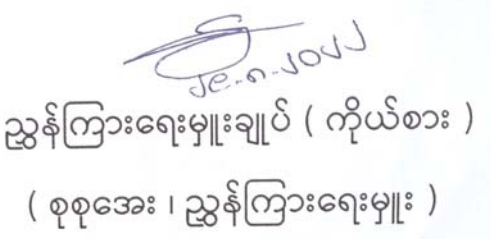 ၂၉-၈-၂၀၂၂
ညွှန်ကြားရေးမှူးချုပ် ( ကိုယ်စား )
( စုစုအေး ၊ ညွှန်ကြားရေးမှူး )